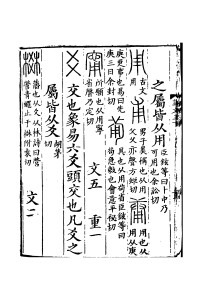 之屬皆从用臣鉉等曰卜中乃可用也余訟切
古文用 甫 男子美稱也从用父父亦聲方矩切 庸 用也从用从庚
庚更事也易曰先庚三日余封切 葡 具也从用苟省臣鉉等曰苟急敕也會意平祕切
甯 所願也从用寧省聲乃定切
文五 重一
爻 交也象易六爻頭交也凡爻之
屬皆从爻胡茅切
棥 藩也从爻从林詩曰營營青蠅止于棥附袁切
文二